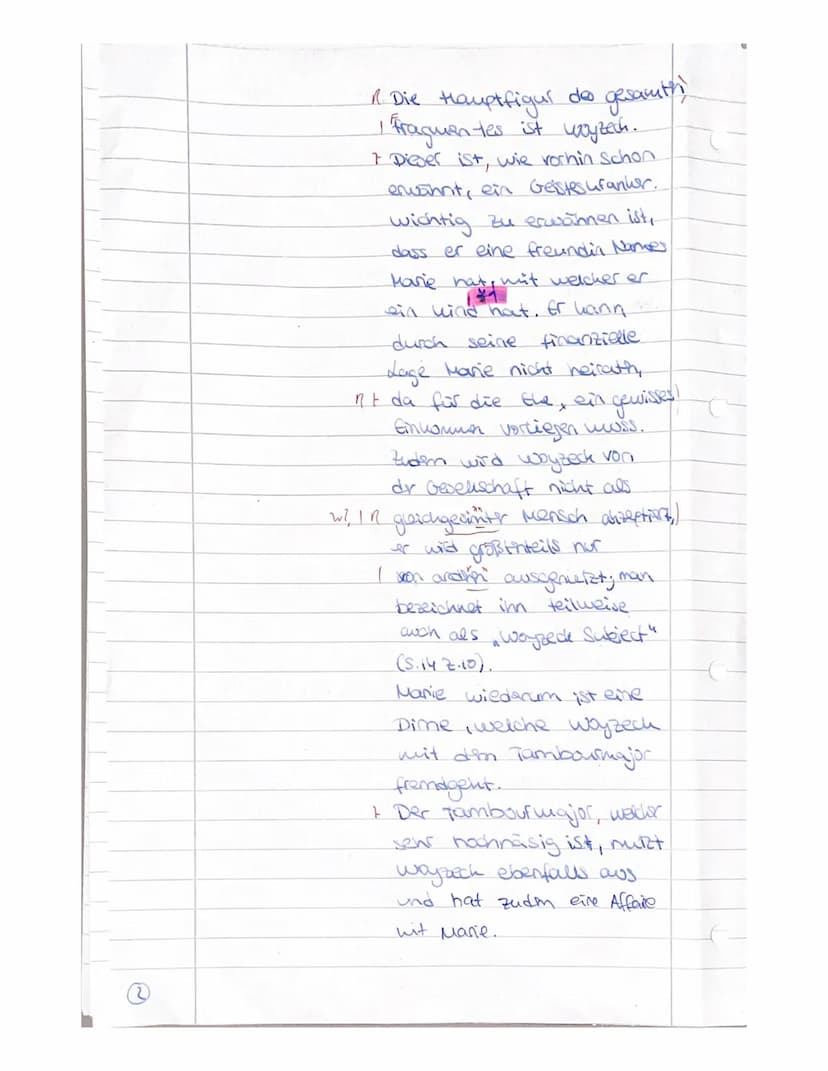 Γ Die Hauptfigur des gesamth
| Fragmentes ist Woyzeck.
Z Dieser ist, wie vorhin schon
erwähnt, ein Geisteskranker.
Wichtig zu erwähnen ist,
dass er eine Freundin Names
Marie hat, mit welcher er
*1
ein Kind hat. Er kann
durch seine finanzielle
Lage Marie nicht heirath,
Z da für die Ehe, ein gewisses
Einkommen vorliegen muss.
Zudem wird Woyzeck von
dr Gesellschaft nicht als
W?, | gleichgesinnter Mensch akzeptiert,
er wird größtnteils nur
| von andren ausgenutzt; man
bezeichnet ihn teilweise
auch als „Woyzeck Subject"
(S.14 Z.10).
Marie wiederum ist eine
Dirne, welche Woyzeck
mit dem Tambourmajor
fremdgeht.
Z Der Tambourmajor, welcher
sehr hochnäsig ist, nutzt
Woyzeck ebenfalls aus
und hat zudem eine Affäire
mit Marie.
2